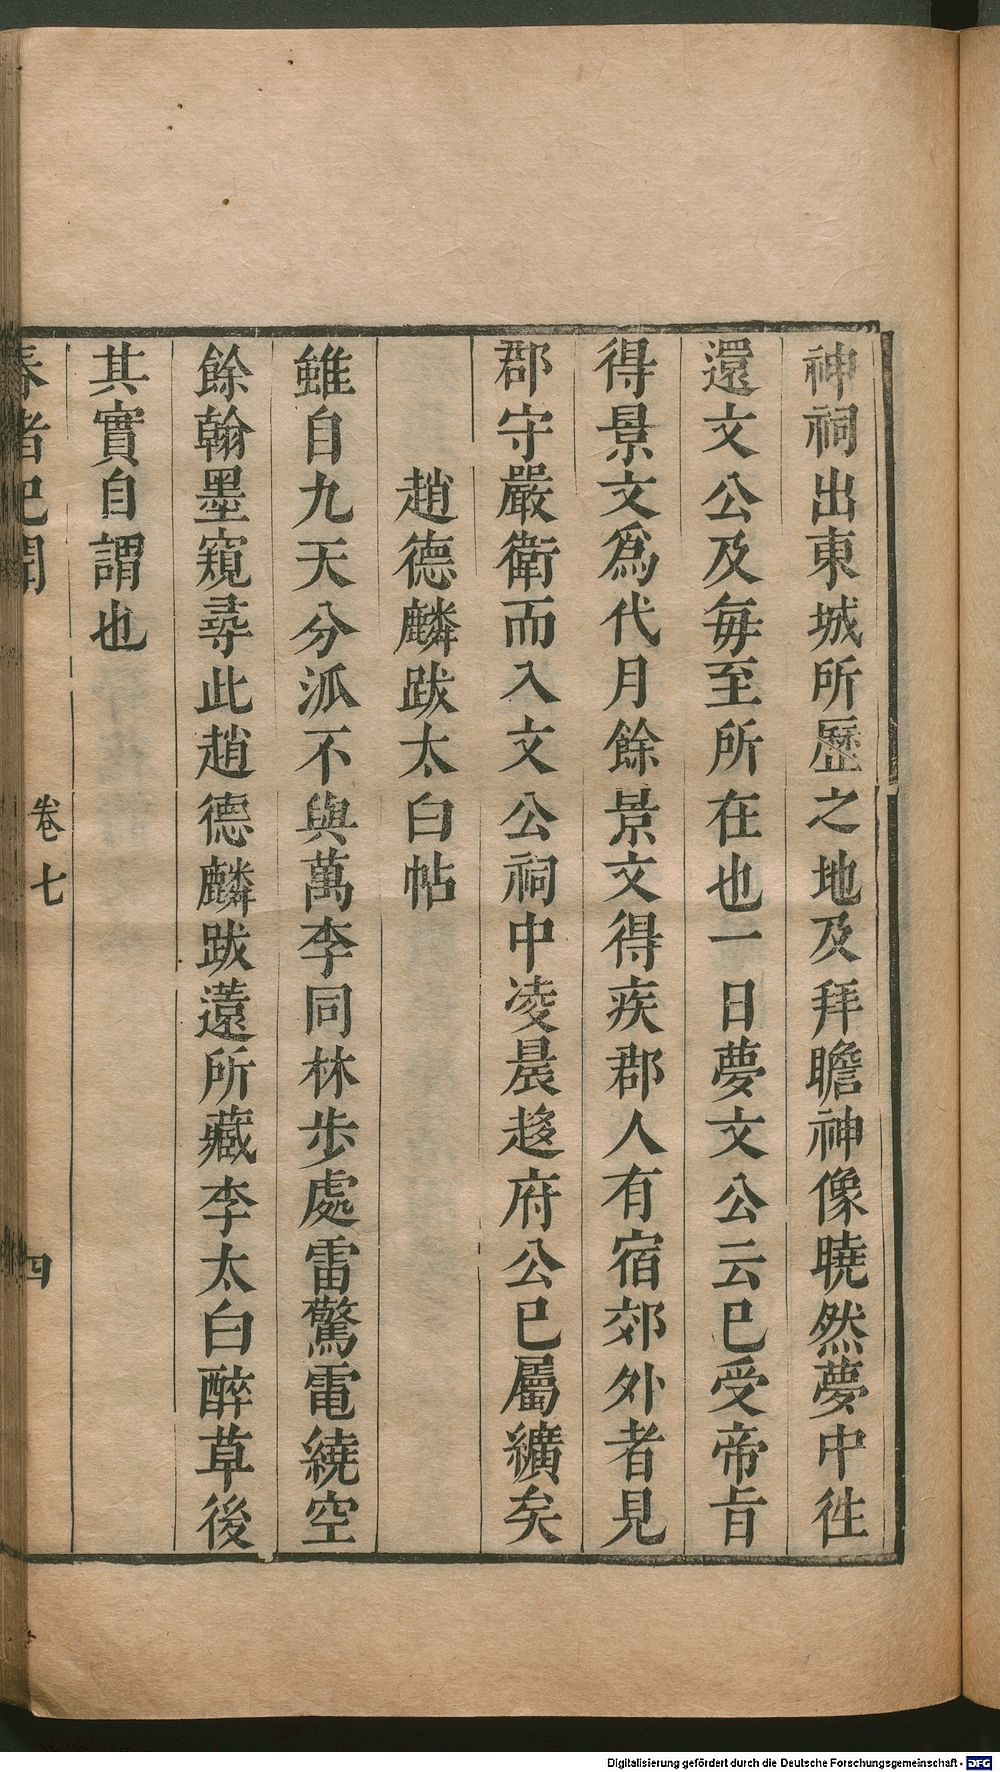 神祠出東城所歷之地及拜瞻神像曉然夢中徃
還文公及每至所在也一日夢文公云已受帝旨
得景文爲代月餘景文得疾郡人有宿郊外者見
郡守嚴衛而入文公祠中凌晨趍府公已屬纊矣
趙德麟跋太白帖
雖自九天分派不與萬李同林步處雷驚電繞空
餘翰墨窺尋此趙德麟跋薳所藏李太白醉草後
其實自謂也
春渚紀聞
卷七
四
Digitalisierung gefördert durch die Deutsche Forschungsgemeinschaft - DFG